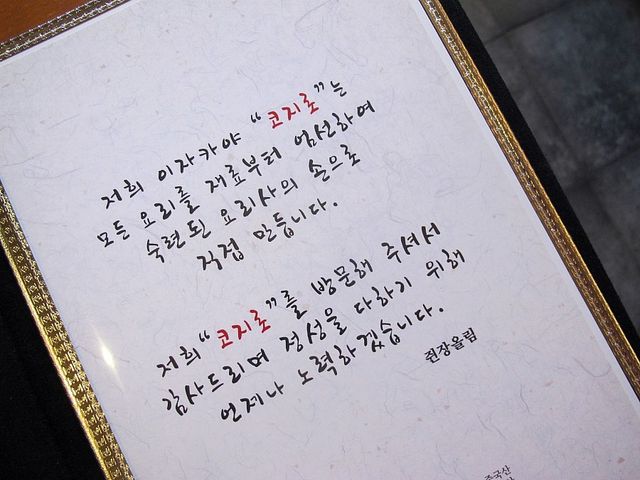 저희 이자카야 "코지로"는
모든 요리를 재료부터 엄선하여
숙련된 요리사의 손으로
직접 만듭니다.
저희 "코지로"를 방문해 주셔서
감사드리며 정성을 다하기 위해
언제나 노력하겠습니다.
점장올림